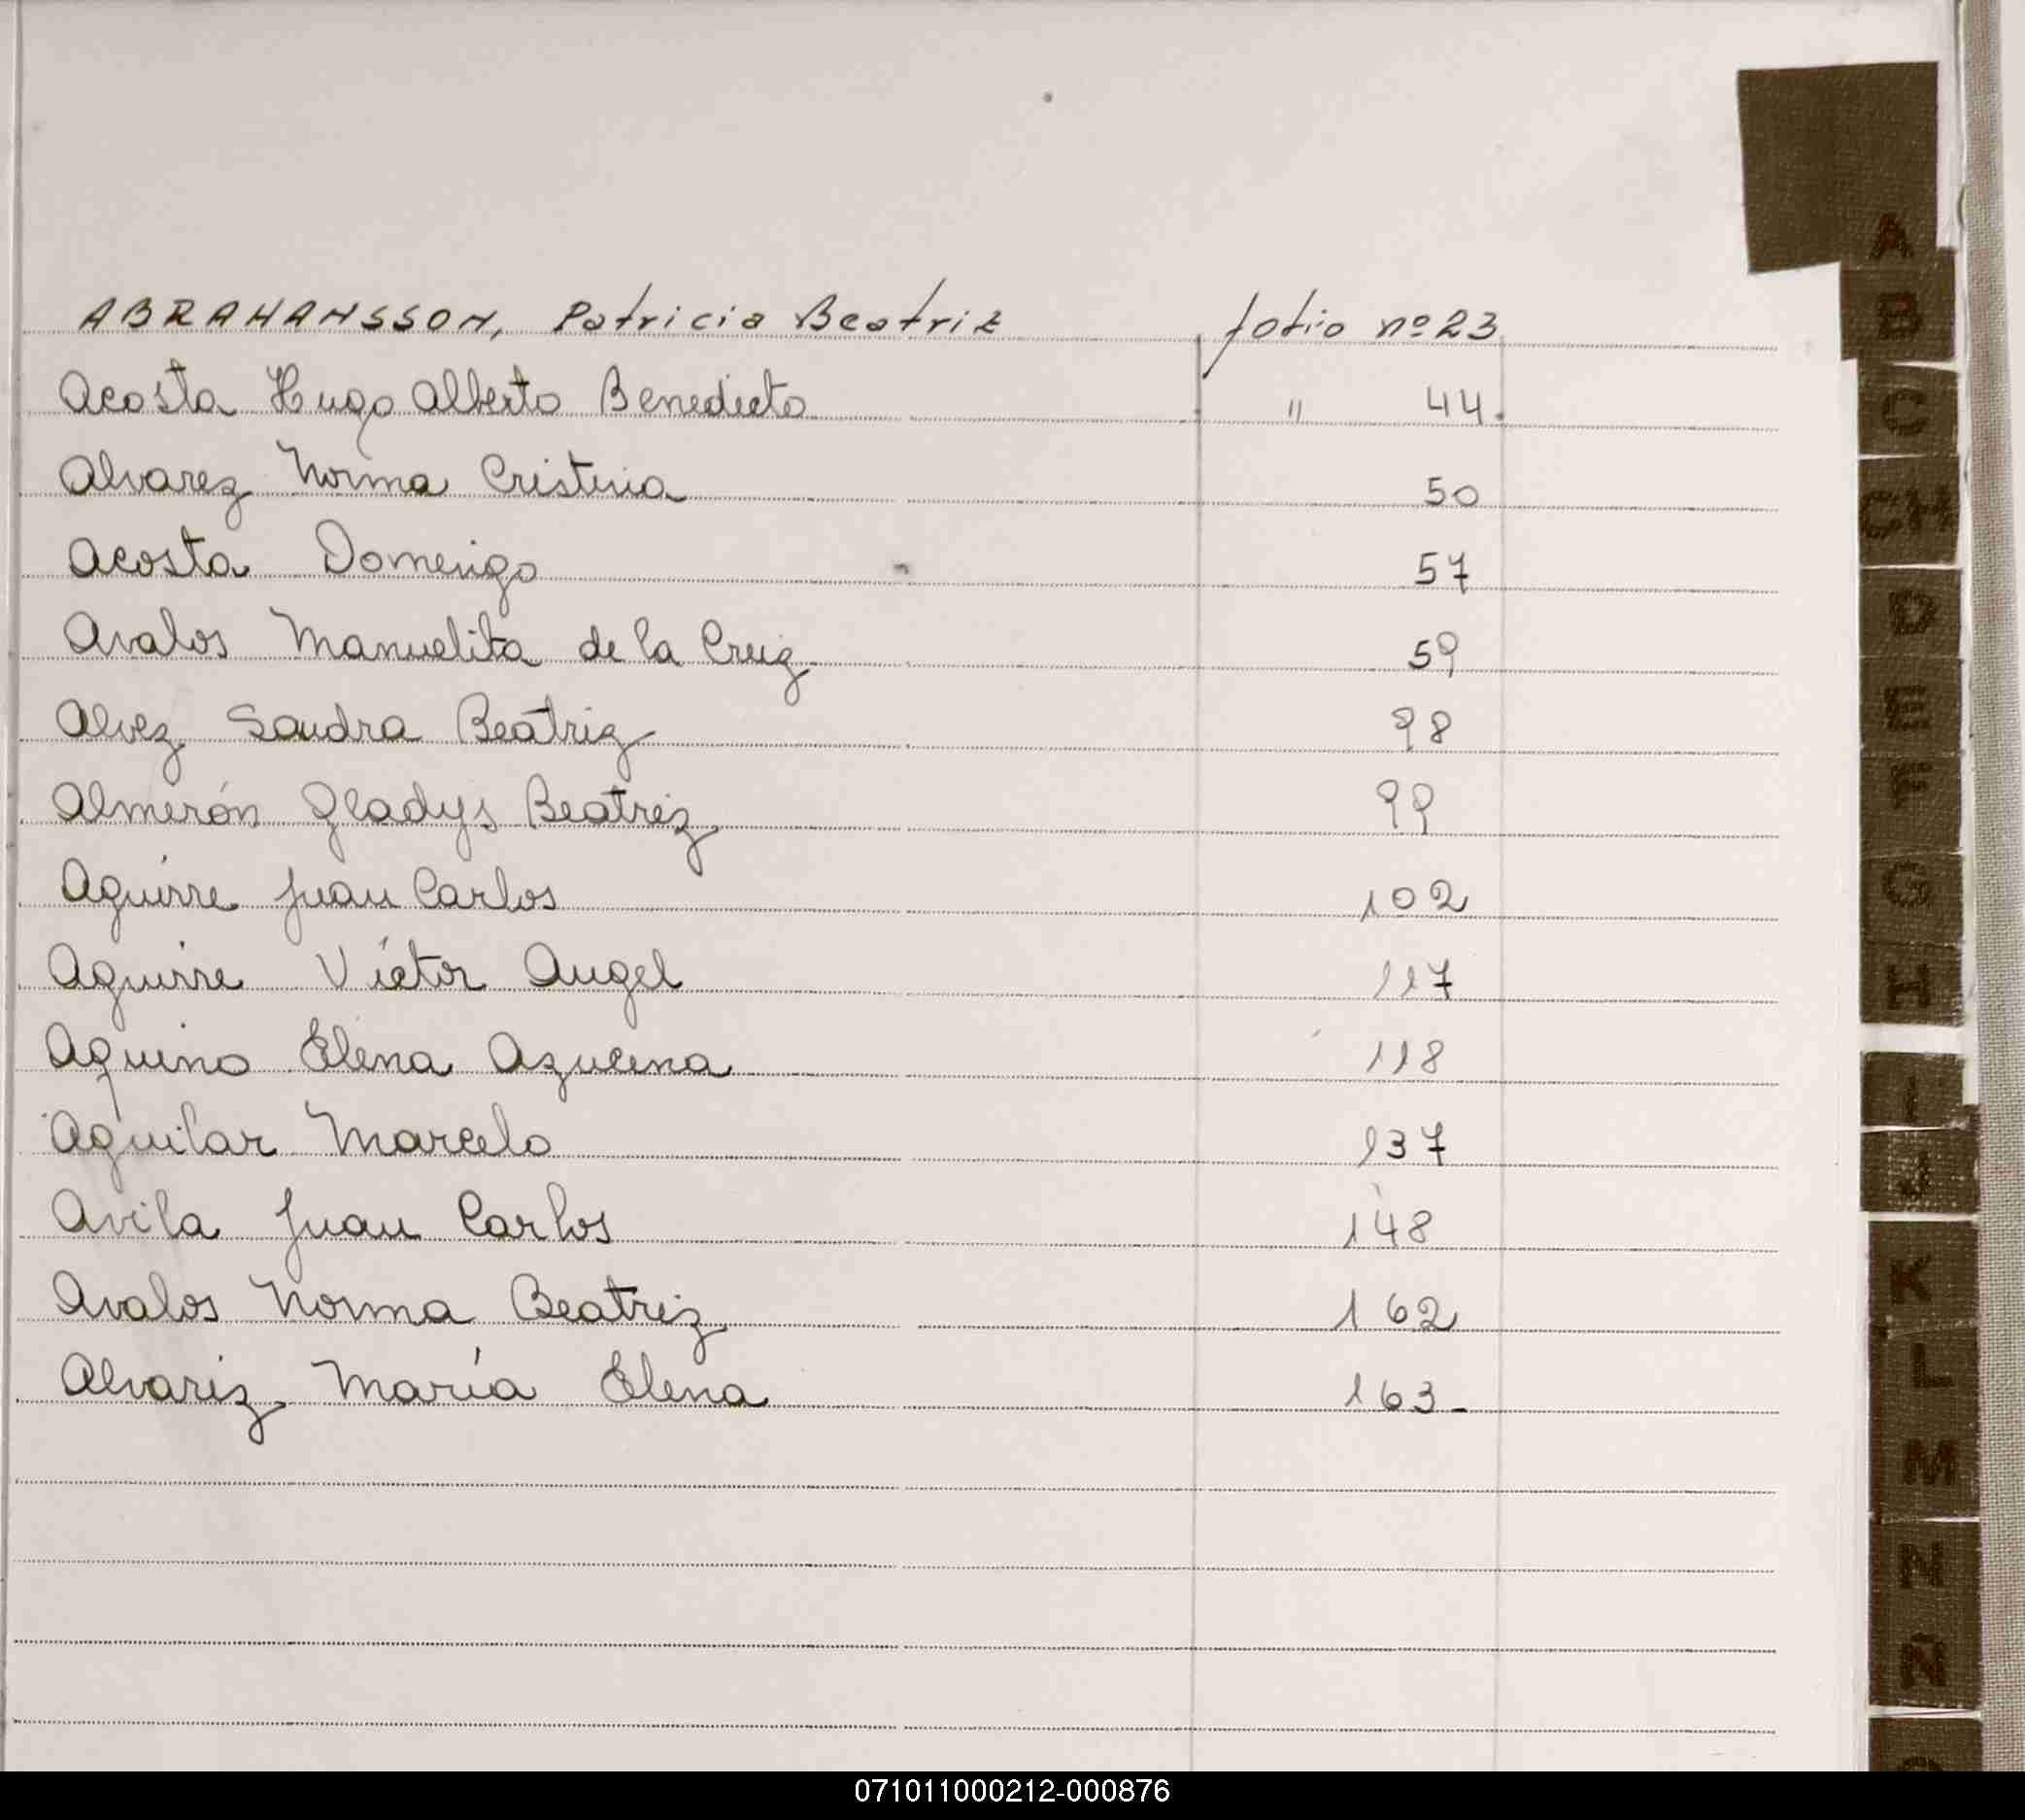 ABRAHAMSSON, Patricia Beatriz folio nº 23
Acosta Hugo Alberto Benedicto " 44.
Alvarez Norma Cristina 50
Acosta Domingo 57
Avalos Manuelita de la Cruz 59
Alvez Sandra Beatriz 98
Almerón Gladys Beatriz 99
Aguirre Juan Carlos 102
Aguirre Víctor Angel 117
Aquino Elena Azucena 118
Aguilar Marcelo 137
Avila Juan Carlos 148
Avalos Norma Beatriz 162
Alvarez María Elena 163-
A
B
C
CH
D
E
F
G
H
I
J
K
L
M
N
Ñ
071011000212-000876